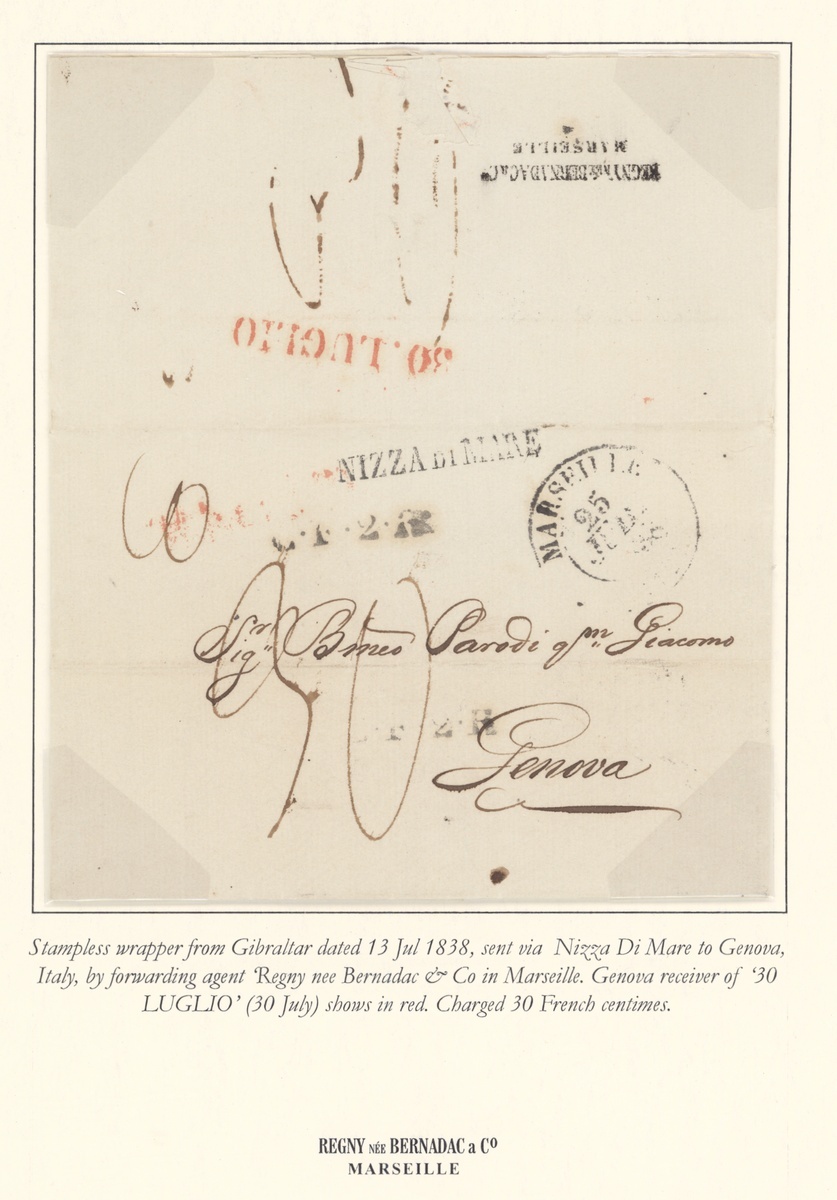 REGNY née BERNADAC & Cº
MARSEILLE
30·LUGLIO
NIZZA DI MARE
MARSEILLE
25
2·R
Sigr Bmeo Parodi qm Giacomo
2·R
Genova
30
Stampless wrapper from Gibraltar dated 13 Jul 1838, sent via Nizza Di Mare to Genova,
Italy, by forwarding agent ‘Regny nee Bernadac & Co in Marseille. Genova receiver of ‘30
LUGLIO’ (30 July) shows in red. Charged 30 French centimes.
REGNY NÉE BERNADAC a Cº
MARSEILLE